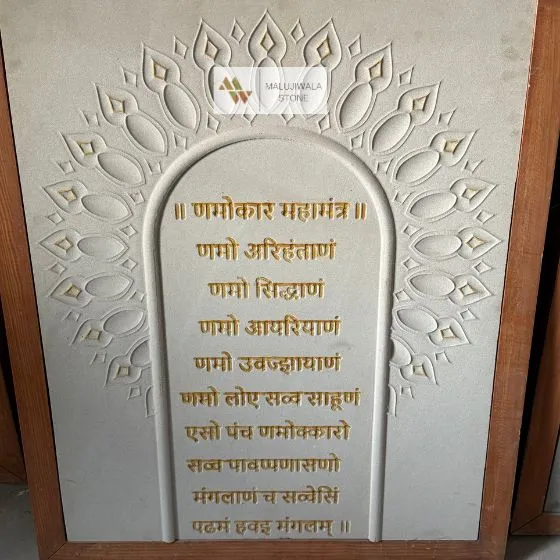 MALUJIWALA
STONE
॥ णमोकार महामंत्र ॥
णमो अरिहंताणं
णमो सिद्धाणं
णमो आयरियाणं
णमो उवज्झायाणं
णमो लोए सव्व साहूणं
एसो पंच णमोक्कारो
सव्व पावप्पणासणो
मंगलाणं च सव्वेसिं
पढमं हवइ मंगलम् ॥